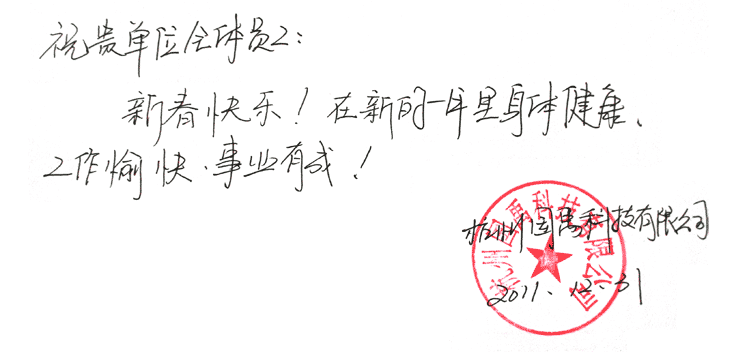 祝贵单位全体员工：
新春快乐！在新的一年里身体健康、
工作愉快、事业有成！
杭州国禹科技有限公司
杭州国禹科技有限公司
2011.12.31